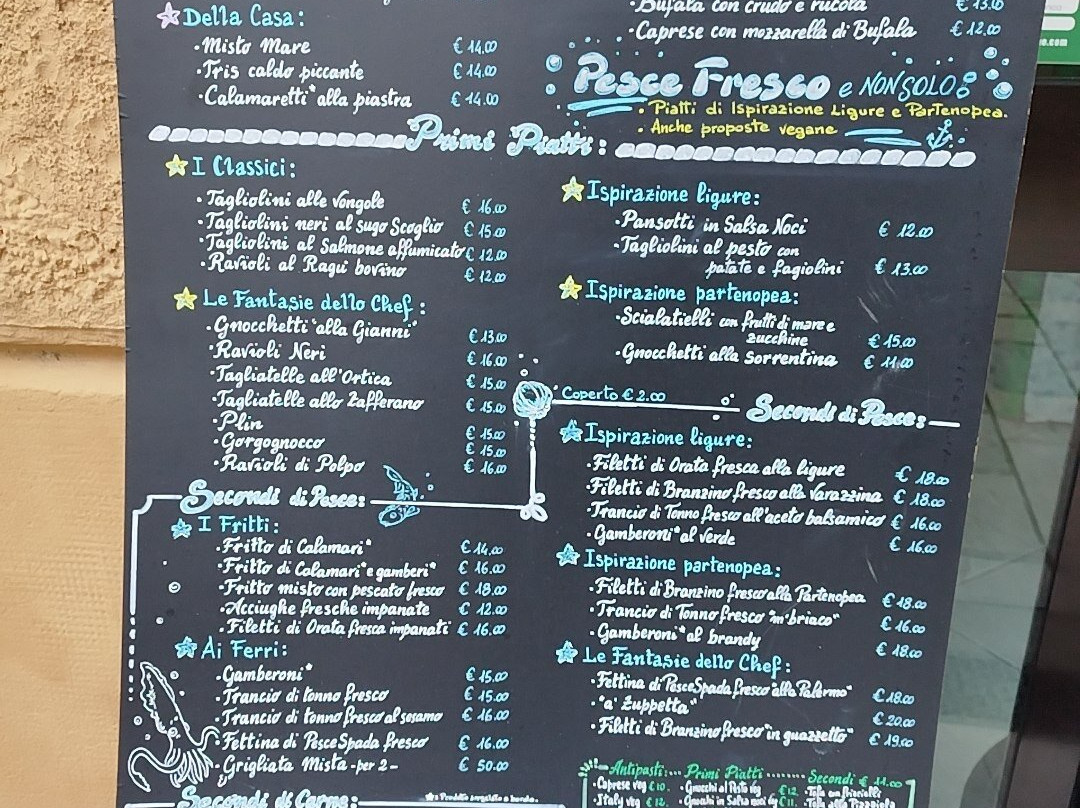 Della Casa:
·Misto Mare € 14.00
·Tris caldo piccante € 14.00
·Calamaretti*alla piastra € 14.00
·Bufala con crudo e rucola € 13.00
·Caprese con mozzarella di Bufala € 12.00
Pesce Fresco e NON SOLO
·Piatti di Ispirazione Ligure e Partenopea.
·Anche proposte vegane
Primi Piatti:
I Classici:
·Tagliolini alle vongole € 16.00
·Tagliolini neri al sugo Scoglio € 15.00
·Tagliolini al Salmone affumicato € 12.00
·Ravioli al Ragu' bovino € 12.00
Le Fantasie dello Chef:
·Gnocchetti "alla Gianni" € 13.00
·Ravioli Neri € 16.00
·Tagliatelle all'Ortica € 15.00
·Tagliatelle allo Zafferano € 15.00
·Plin € 15.00
·Gorgognocco € 15.00
·Ravioli di Polpo € 16.00
Ispirazione ligure:
·Pansotti in Salsa Noci € 12.00
·Tagliolini al pesto con
patate e fagiolini € 13.00
Ispirazione partenopea:
·Scialatielli con frutti di mare e
zucchine € 15.00
·Gnocchetti alla Sorrentina € 11.00
Coperto € 2.00
Secondi di Pesce:
I Fritti:
·Fritto di Calamari* € 14.00
·Fritto di Calamari*e gamberi* € 16.00
·Fritto misto con pescato fresco € 18.00
·Acciughe fresche impanate € 12.00
·Filetti di Orata fresca impanati € 16.00
Ai Ferri:
·Gamberoni* € 15.00
·Trancio di tonno fresco € 15.00
·Trancio di tonno fresco al sesamo € 16.00
·Fettina di Pesce Spada fresco € 16.00
·Grigliata Mista -per 2- € 50.00
Secondi di Carne:
*: Prodotto congelato a bordo.
Secondi di Pesce:
Ispirazione ligure:
·Filetti di Orata fresca alla ligure € 18.00
·Filetti di Branzino fresco alla Varazzina € 18.00
·Trancio di Tonno fresco all'aceto balsamico € 16.00
·Gamberoni*al verde € 16.00
Ispirazione partenopea:
·Filetti di Branzino fresco alla Partenopea € 18.00
·Trancio di Tonno fresco "m'briaco" € 16.00
·Gamberoni*al brandy € 18.00
Le Fantasie dello Chef:
·Fettina di Pesce Spada fresco "alla Palermo" € 18.00
·"a' Zuppetta" € 20.00
·Filetti di Branzino fresco "in guazzetto" € 19.00
Antipasti:... Primi Piatti ....... Secondi € 11.00
·Caprese veg €10. ·Gnocchi al Pesto veg €12.
·Italy veg €12. ·Gnocchi in Salsa noci €11.